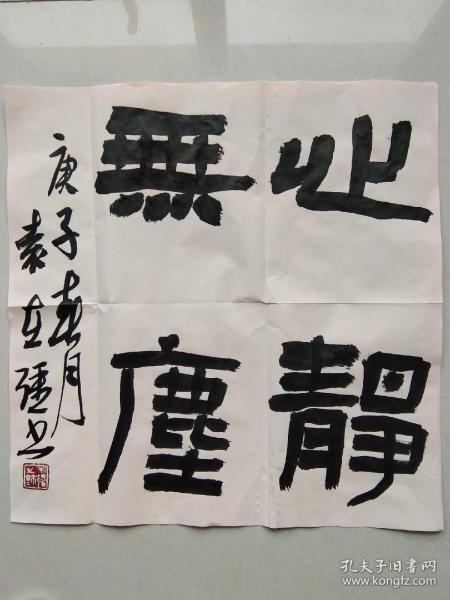 心静
無塵
庚子春月
袁在強书
孔夫子旧书网
www.kongfz.com